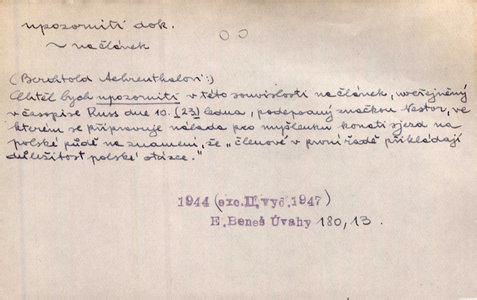 upozorniti dok.
~ na článek
(Berchtold Aehrenthalovi:)
Chtěl bych upozorniti v této souvislosti na článek, uveřejněný
v časopise Russ dne 10. (23) ledna, podepsaný značkou Nestor, ve
kterém se připravuje nálada pro myšlenku konati sjezd na
polské půdě na znamení, že „členové v první řadě přikládají
důležitost polské otázce."
1944 (exc. II. vyd. 1947)
E. Beneš Úvahy 180,13.